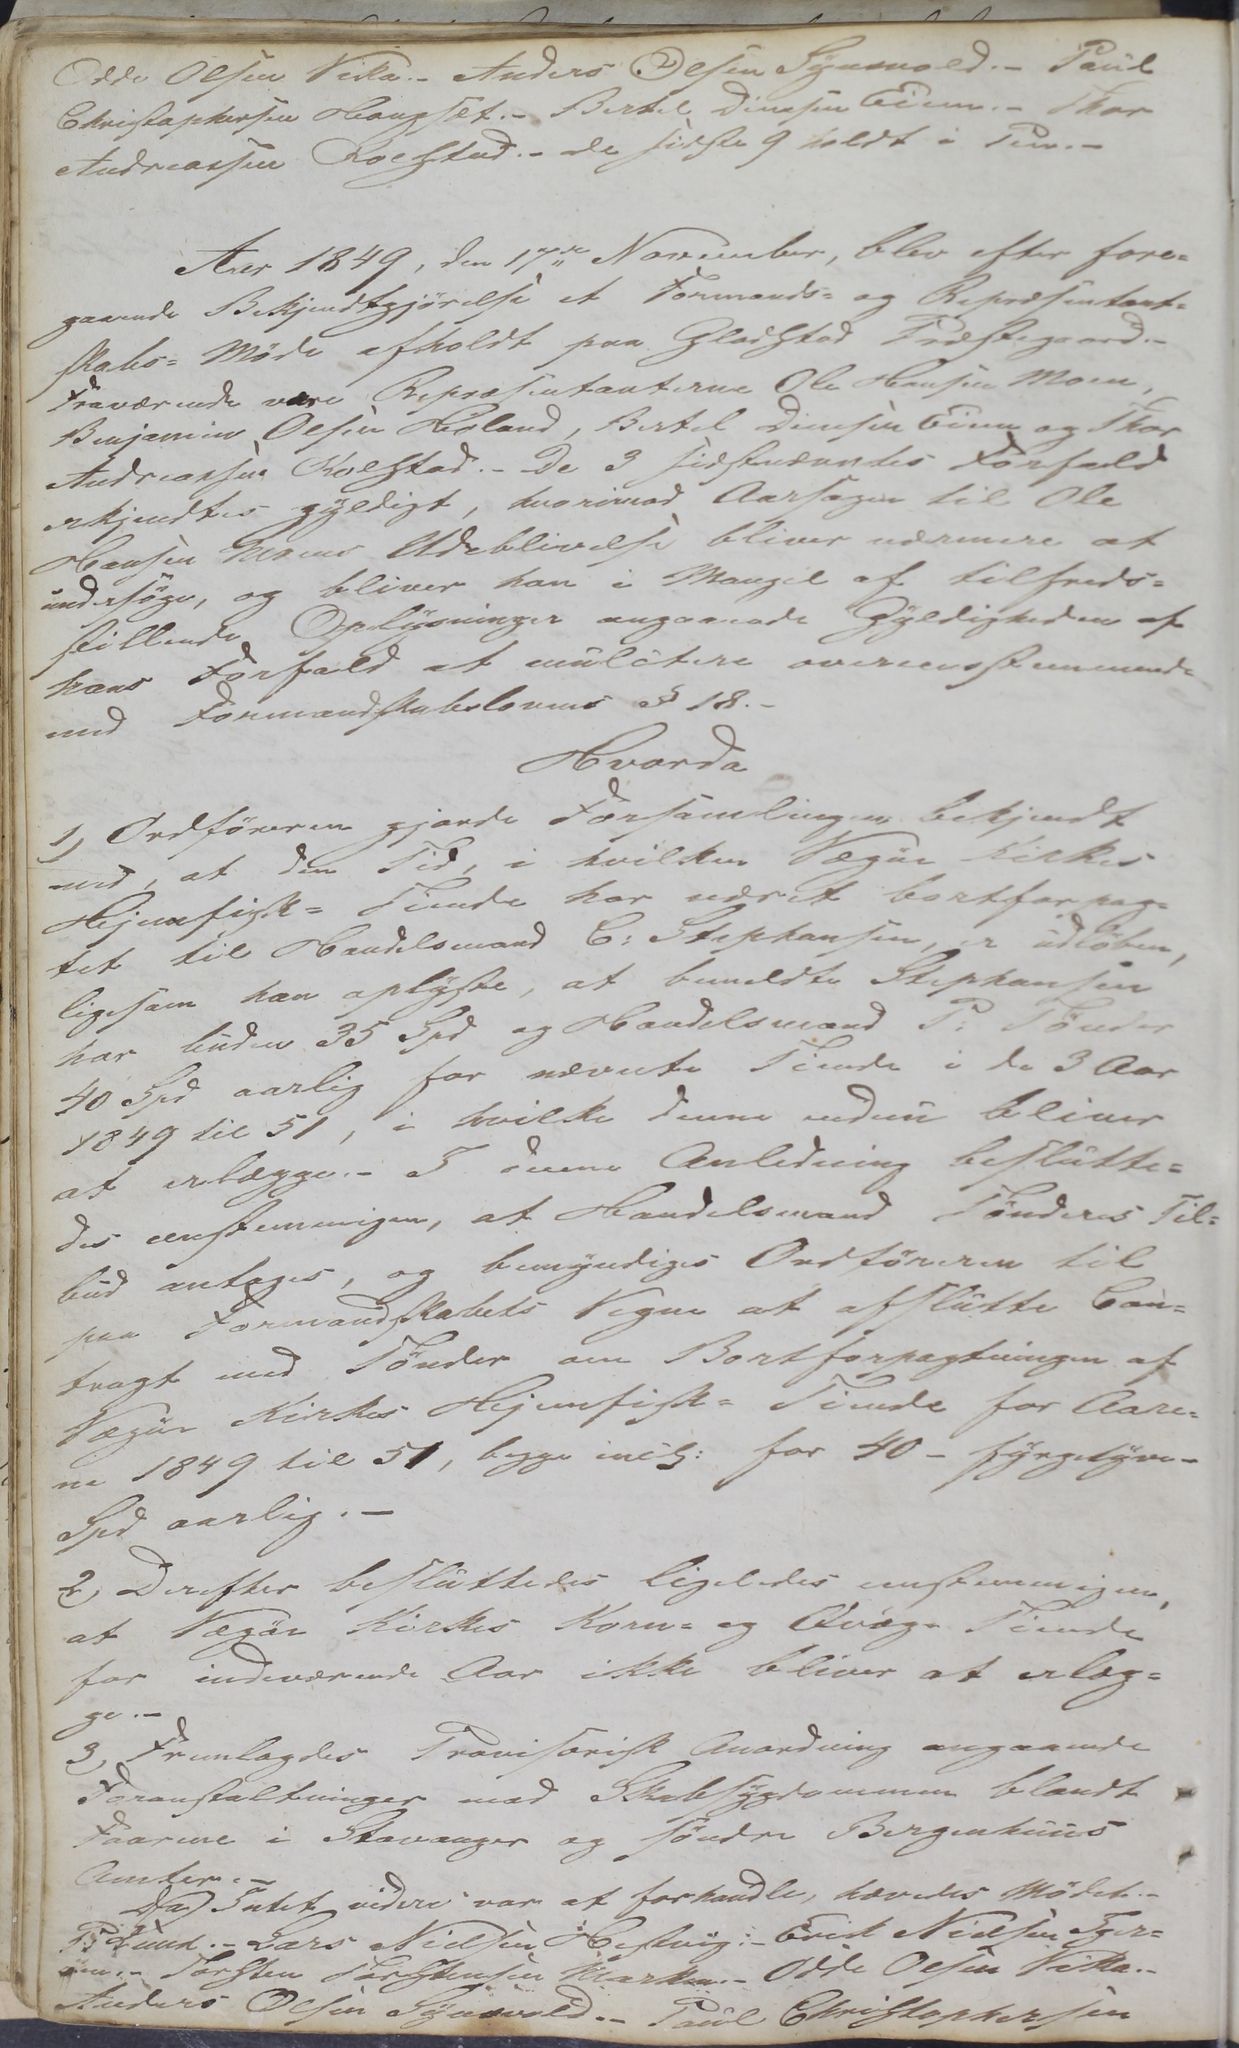 Odde Olsen Vika. – Anders Olsen Synsvold. – Paul
Christophersen Haugset. – Bertel Dinesen Eidem. – Thor
Andreassen Rolstad. – de sidste 9 holdt i Pen. –
Aar 1849, den 17de November, blev efter fore=
gaaende Bekjendtgjörelse et Formands= og Repræsentant=
skabs= Möde afholdt paa Gladstad Præstegaard. –
Fraværende vare Repræsentanterne Ole Hansen Moen,
Benjamin Olsen Höland, Bertel Dinesen Eidem og Thor
Andreassen Rolstad. – De 3 sidstnævntes Forfald
erkjendtes gyldigt, hvorimod Aarsagen til Ole
Hansen Moens Udeblivelse bliver nærmere at
undersöge, og bliver han i Mangel af tilfreds=
stillende Oplysninger angaaende Gyldigheden af
hans Forfald at mulctere overensstemmende
med Formandskabslovens § 18. –
Hvorda
1, Ordföreren gjorde Forsamlingen bekjendt
med, at den Tid, i hvilken Vegöe Kirkes
Hjemfisk= Tiende har været bortforpag=
tet til Handelsmand C: Stephansen, er udlöben,
ligesom han oplyste, at bemeldte Stephansen
har buden 35 Spd og Handelsmand P: Tönder
40 Spd aarlig for nævnte Tiende i de 3 Aar
1849 til 51, i hvilke denne endnu bliver
at erlægge. – I denne Anledning beslutte=
des enstemmigen, at Handelsmand Tönders Til=
bud antages, og bemyndiges Ordföreren til
paa Formandskabets Vegne at afslutte Con=
tragt med Tönder om Bortforpagtningen af
Vegöe Kirkes Hjemfisk= Tiende for Aare=
ne 1849 til 51, begge incl: for 40 – fyrgetyve –
Spd aarlig. –
2, Derefter besluttedes ligeledes enstemmigen,
at Vegöe Kirkes Korn= og Qvæg= Tiende
for indeværende Aar ikke bliver at erlæg=
ge. –
3, Fremlagdes Provisorisk Anordning angaaende
Foranstaltninger mod Skabsygdommen blandt
Faarene i Stavanger og söndre Bergenhuus
Amter. –
Da Intet videre var at forhandle, hævedes Mödet. –
P: Lund. – Lars Nielsen – Erik Nielsen
Torsten Torstensen Marken. – Odde Olsen Vika. –
Anders Olsen Synsvold. – Paul Christophersen